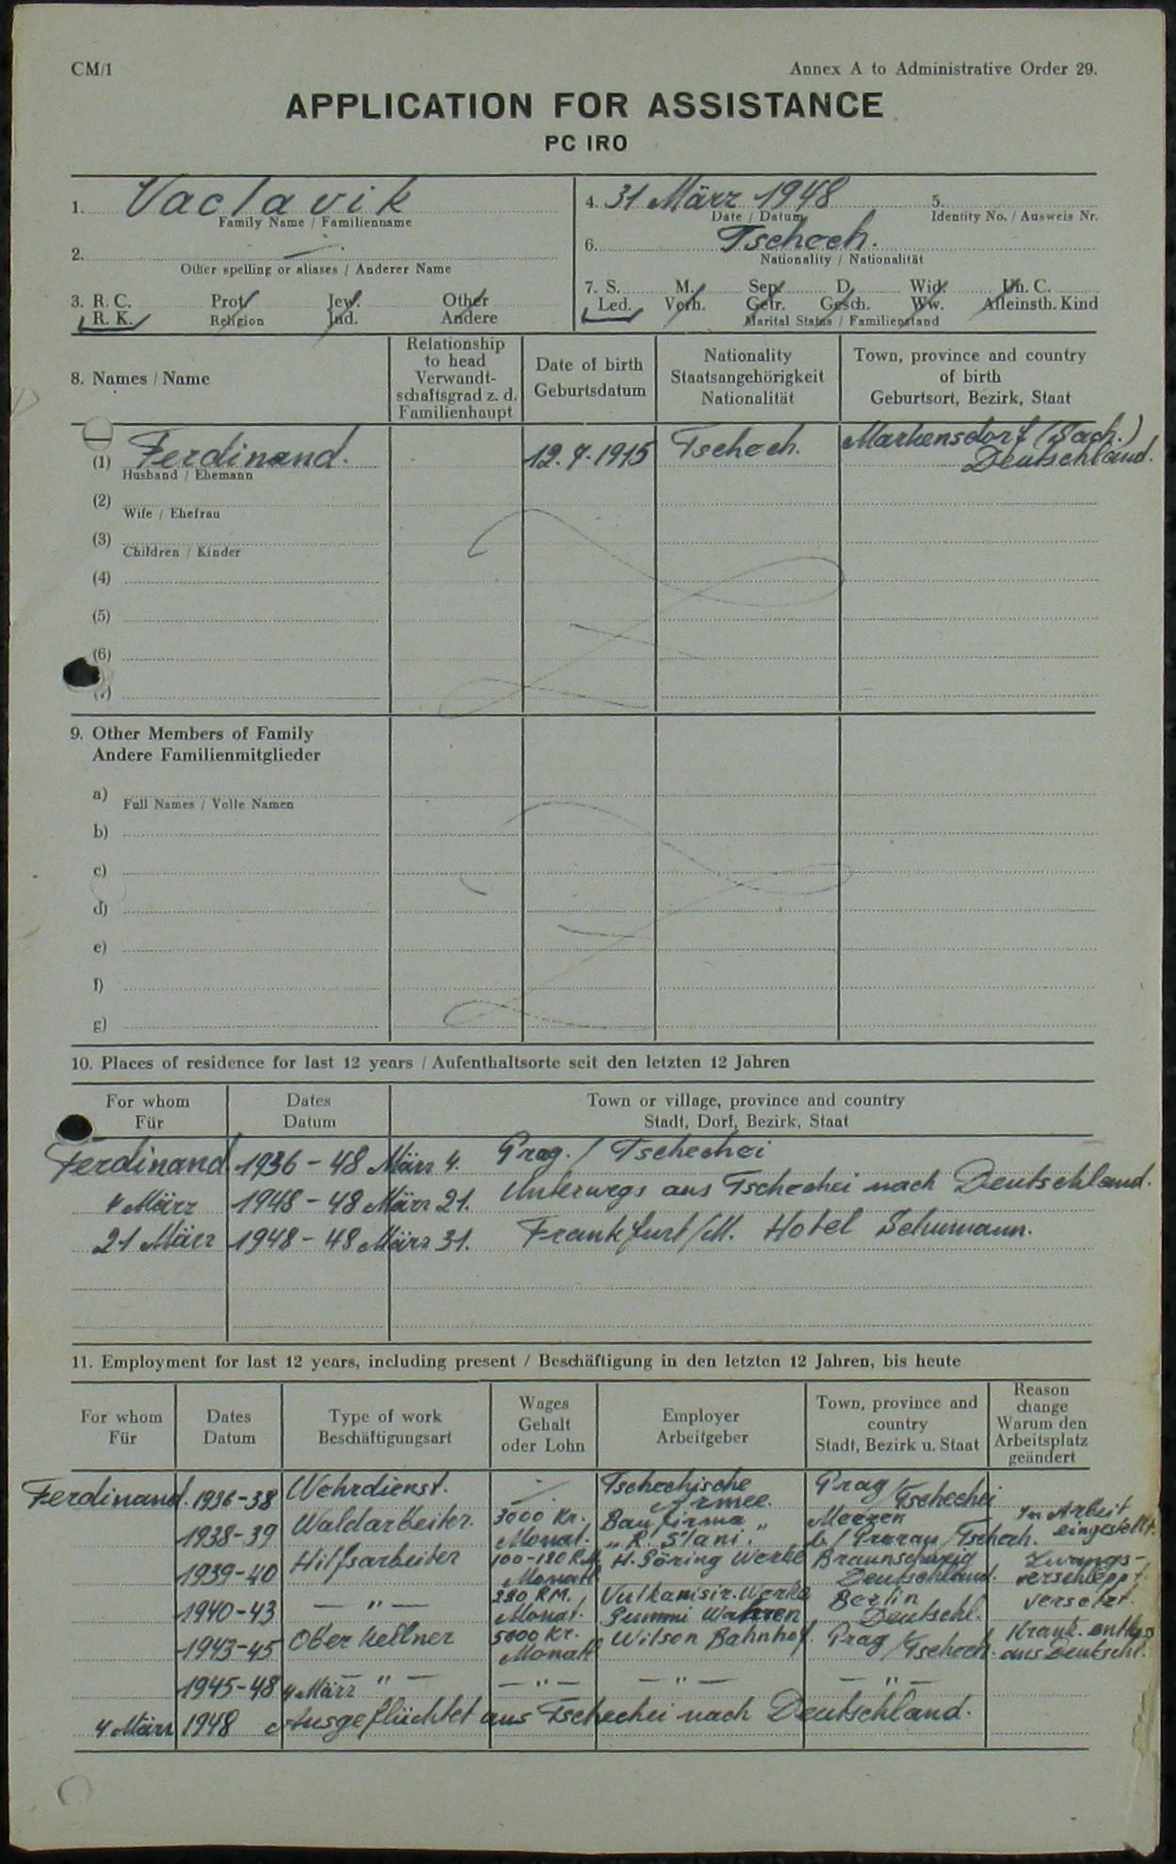 CM/1
Annex A to Administrative Order 29.
APPLICATION FOR ASSISTANCE
PC IRO
1. Vaclavik
Family Name / Familienname
2.
Other spelling or aliases / Anderer Name
3. R. C. Prot. Jew. Other
R. K. Religion Jud. Andere
4. 31 März 1948 5.
Date / Datum Identity No. / Ausweis Nr.
6. Tschech.
Nationality / Nationalität
7. S. M. Sep. D. Wid. Un. C.
Led. Verh. Getr. Gesch. Ww. Alleinsth. Kind
Marital Status / Familienstand
8. Names / Name
Relationship
to head
Verwandt-
schaftsgrad z. d.
Familienhaupt
Date of birth
Geburtsdatum
Nationality
Staatsangehörigkeit
Nationalität
Town, province and country
of birth
Geburtsort, Bezirk, Staat
(1) Ferdinand. 12.7.1915 Tschech. Markensdorf (Sach.)
Deutschland.
Husband / Ehemann
(2)
Wife / Ehefrau
(3)
Children / Kinder
(4)
(5)
(6)
9. Other Members of Family
Andere Familienmitglieder
a)
Full Names / Volle Namen
b)
c)
d)
e)
f)
g)
10. Places of residence for last 12 years / Aufenthaltsorte seit den letzten 12 Jahren
For whom
Für
Dates
Datum
Town or village, province and country
Stadt, Dorf, Bezirk, Staat
Ferdinand. 1936 - 48 März 4. Prag. / Tschechei
4 März 1948 - 48 März 21. Unterwegs aus Tschechei nach Deutschland.
21 März 1948 - 48 März 31. Frankfurt/M. Hotel Schumann.
11. Employment for last 12 years, including present / Beschäftigung in den letzten 12 Jahren, bis heute
For whom
Für
Dates
Datum
Type of work
Beschäftigungsart
Wages
Gehalt
oder Lohn
Employer
Arbeitgeber
Town, province and
country
Stadt, Bezirk u. Staat
Reason
change
Warum den
Arbeitsplatz
geändert
Ferdinand. 1936-38 Wehrdienst. — Tschechische Armee. Prag / Tschechei
1938-39 Waldarbeiter. 3000 Kr. Monat. Baufirma „ „ R. Slani. b/ Prerau / Tschech. In Arbeit eingestellt.
1939-40 Hilfsarbeiter 100-120 RM Monatl H. Göring Werke Braunschweig Deutschland. Zwangs-verschleppt.
1940-43 — " — 280 RM. Monat. Vulkanisir. Werke Gummi Wahren Berlin Deutschl. versetzt.
1943-45 Oberkellner 5000 Kr. Monatl Wilson Bahnhof. Prag / Tschech. Krank. entlass aus Deutschl.
1945-48 4 März — " — — " — — " — — " —
4 März 1948 Ausgeflüchtet aus Tschechei nach Deutschland.